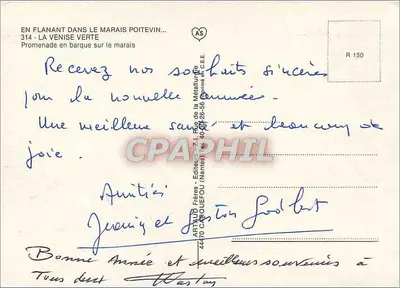 EN FLANANT DANS LE MARAIS POITEVIN...
314 - LA VENISE VERTE
Promenade en barque sur le marais
AS
R 150
Recevez nos souhaits sincères
pour la nouvelle année.
Une meilleure santé et beaucoup de
joie.
Amitiés
Jeanny et Gaston
Bonne Année et meilleurs souvenirs à
Tous deux
ARTAUD Frères - Editeurs - 7, Rue de la Métallurgie
44470 CARQUEFOU (Nantes)
CPAPHIL